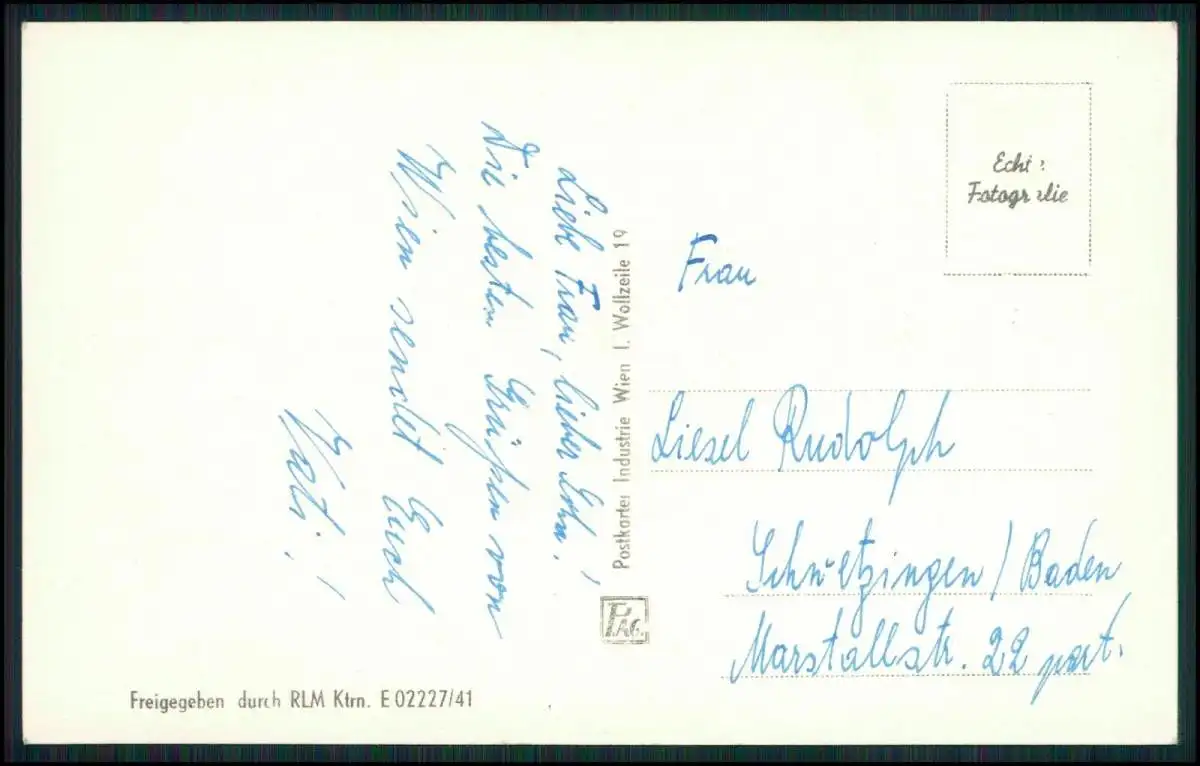 Liebe Frau, lieber Sohn!,
Die besten Grüßen von
Wien sendet Euch
Vati!
Postkarten Industrie Wien I. Wollzeile 19
PAG.
Echte
Fotografie
Frau
Liesel Rudolph
Schwetzingen / Baden
Marstallstr. 22 part.
Freigegeben durch RLM Ktrn. E 02227/41